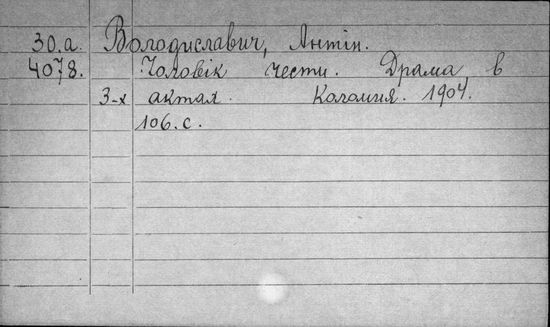 30.а. Володиславич, Антін.
4078. Чоловік чести. Драма в
3-х актах. Коломия. 1904.
106.с.